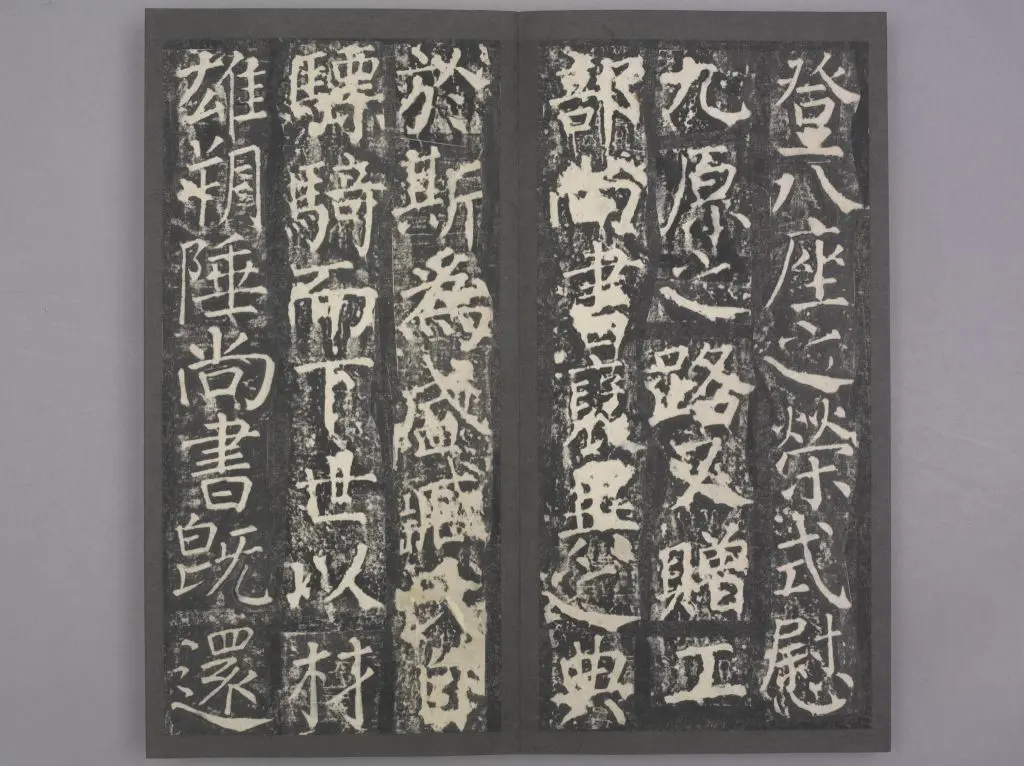 登八座之榮式慰
九原之路又贈工
部尚書之典
於斯為盛自
驃騎而下世以材
雄朔陲尚書既還